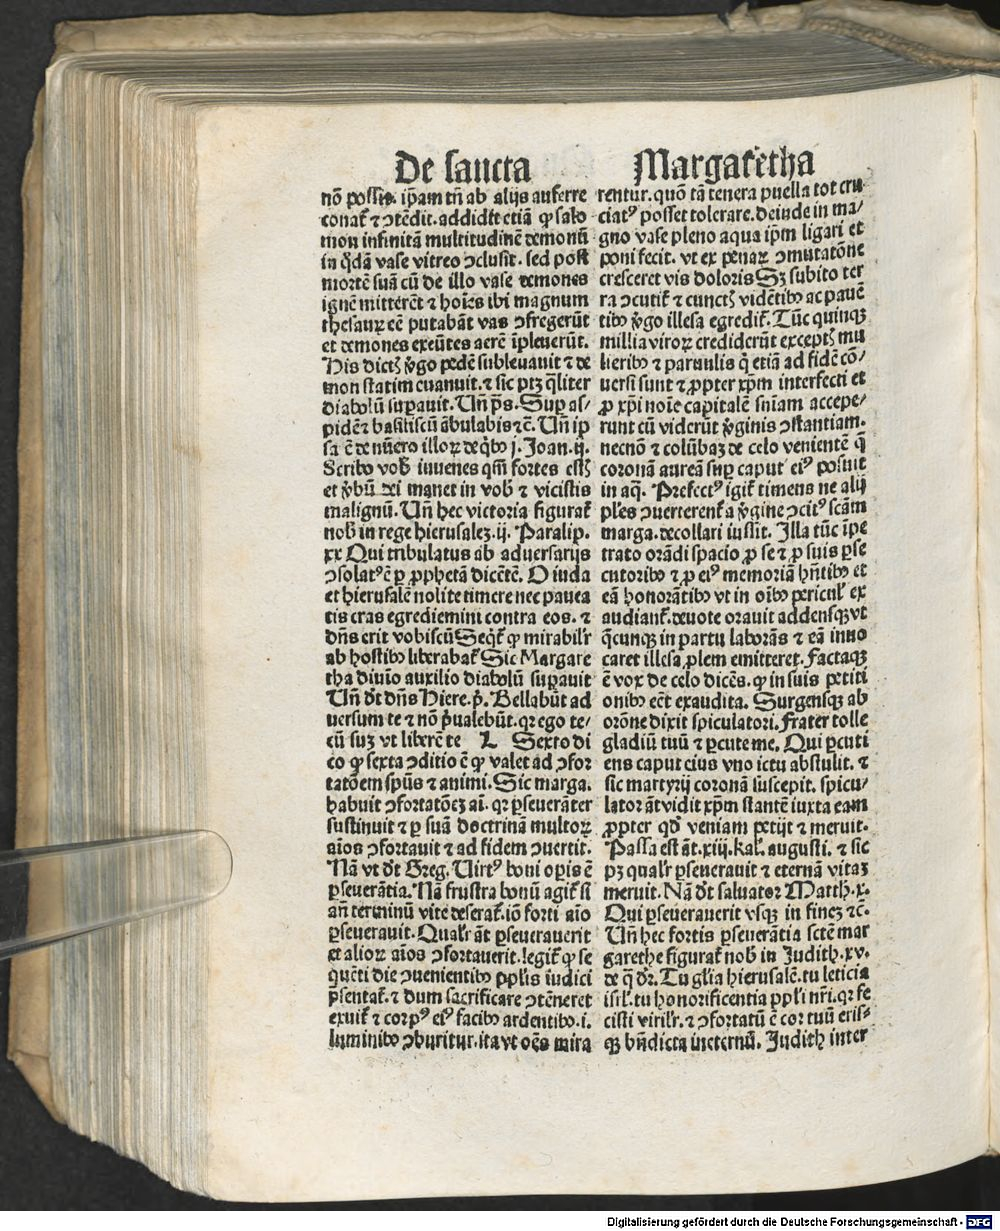 De sancta Margaretha
nō possis. ip̄am tn̄ ab alijs auferre
conat᷑ ⁊ ꝯtēdit. addidit etiā ꝙ salo
mon infinitā multitudinē demonū
in q̇dā vase vitreo ꝯclusit. sed post
mortē suā cū de illo vase demones
ignē mitterēt ⁊ hoīes ibi magnum
thesauꝝ eē putabāt vas ꝯfregerūt
et demones exeūtes aerē īpleuerūt.
His dictꝭ v̇go pedē subleuauit ⁊ de
mon statim euanuit. ⁊ sic ptꝫ q̄liter
diabolū suꝑauit. Un̄ p̄s. Suꝑ as/
pidē ⁊ basiliscū ābulabis ⁊c̄. Un̄ ip̄
sa ē de nūero illoꝝ de q̇bꝰ j. Joan. ij.
Scribo vob̄ iuuenes qm̄ fortes estꝭ
et v̇bū dei manet in vob̄ ⁊ vicistis
malignū. Un̄ hec victoria figurat᷑
nob̄ in rege hierusalē. ij. Paralip.
xx Qui tribulatus ab aduersarijs
ꝯsolatꝰ ē ꝑ ꝓphetā dicētē. O iuda
et hierusalē nolite timere nec pauea
tis cras egrediemini contra eos. ⁊
dn̄s erit vobiscū Seqt᷑ ꝙ mirabilr̄
ab hostibꝰ liberabat᷑ Sic Margare
tha diuīo auxilio diabolū suꝑauit
Un̄ dt̄ dn̄s Hiere. p̄. Bellabūt ad
uersum te ⁊ nō p̄ualebūt. qꝛ ego te/
cū suꝫ vt liberē te L Sexto di
co ꝙ sexta ꝯditio ē ꝙ valet ad ꝯfor
tatōem spūs ⁊ animi. Sic marga.
habuit ꝯfortatōeꝫ aī. qꝛ ꝑseuerāter
sustinuit ⁊ ꝑ suā doctrinā multoꝝ
aīos ꝯfortauit ⁊ ad fidem ꝯuertit.
Nā vt dt̄ Greg. Uirtꝰ boni oꝑis ē
ꝑseuerātia. Nā frustra bonū agit᷑ si
an̄ terminū vite deserat᷑. iō forti aīo
ꝑseuerauit. Qualr̄ āt ꝑseuerauerit
et alioꝝ aīos ꝯfortauerit. legit᷑ ꝙ se
quēti die ꝯuenientibꝰ ppl̄is iudici
p̄sentat᷑. ⁊ dum sacrificare ꝯtēneret
exuit᷑ ⁊ corpꝰ eiꝰ facibꝰ ardentibꝰ. i.
luminibꝰ ꝯburitur. ita vt oēs mira
rentur. quō tā tenera puella tot cru
ciatꝰ posset tolerare. deinde in ma/
gno vase pleno aqua ip̄m ligari et
poni fecit. vt ex penaꝝ ꝯmutatōne
cresceret vis doloris Sꝫ subito ter
ra ꝯcutit᷑ ⁊ cunctꝭ vidētibꝰ ac pauē
tibꝰ v̇go illesa egredit᷑. Tūc quinqꝫ
millia viroꝝ crediderūt exceptꝭ mu
lieribꝰ ⁊ paruulis q̇ etiā ad fidē cō/
uersi sunt ⁊ ꝓpter xp̄m interfecti et
ꝓ xp̄i noīe capitalē sn̄iam accepe/
runt cū viderūt v̇ginis ꝯstantiam.
necnō ⁊ colūbaꝫ de celo venientē q̄
coronā aureā suꝑ caput eiꝰ posuit
in aq̄. Prefectꝰ igit᷑ timens ne alij
ples ꝯuerterent᷑ a v̇gine ꝯcitꝰ scām
marga. decollari iussit. Illa tūc īpe
trato orādi spacio ꝓ se ⁊ ꝓ suis ꝑse
cutoribꝰ ⁊ ꝓ eiꝰ memoriā hn̄tibꝰ et
eā honorātibꝰ vt in oībꝰ pericul̄ ex
audiant᷑. deuote orauit addensqꝫ vt
q̄cunqꝫ in partu laborās ⁊ eā inuo
caret illesa ꝓlem emitteret. Factaqꝫ
ē vox de celo dicēs. ꝙ in suis petiti
onibꝰ eēt exaudita. Surgensqꝫ ab
orōne dixit spiculatori. Frater tolle
gladiū tuū ⁊ ꝑcute me. Qui ꝑcuti
ens caput eius vno ictu abstulit. ⁊
sic martyrij coronā suscepit. spicu/
lator āt vidit xp̄m stantē iuxta eam
ꝓpter qd̄ veniam petijt ⁊ meruit.
Passa est āt. xiij. kal̄. augusti. ⁊ sic
pꝫ qualr̄ ꝑseuerauit ⁊ eternā vitaꝫ
meruit. Nā dt̄ saluator Matth. x.
Qui ꝑseuerauerit vsqꝫ in fineꝫ ⁊c̄.
Un̄ hec fortis ꝑseuerātia sctē mar
garethe figurat᷑ nob̄ in Judith. xv.
de q̄ dr̄. Tu gl̄ia hierusalē. tu leticia
isrl̄. tu honorificentia ppl̄i nr̄i. qꝛ fe
cisti virilr̄. ⁊ ꝯfortatū ē cor tuū eris/
qꝫ bn̄dicta ineternū. Judith inter
Digitalisierung gefördert durch die Deutsche Forschungsgemeinschaft - DFG